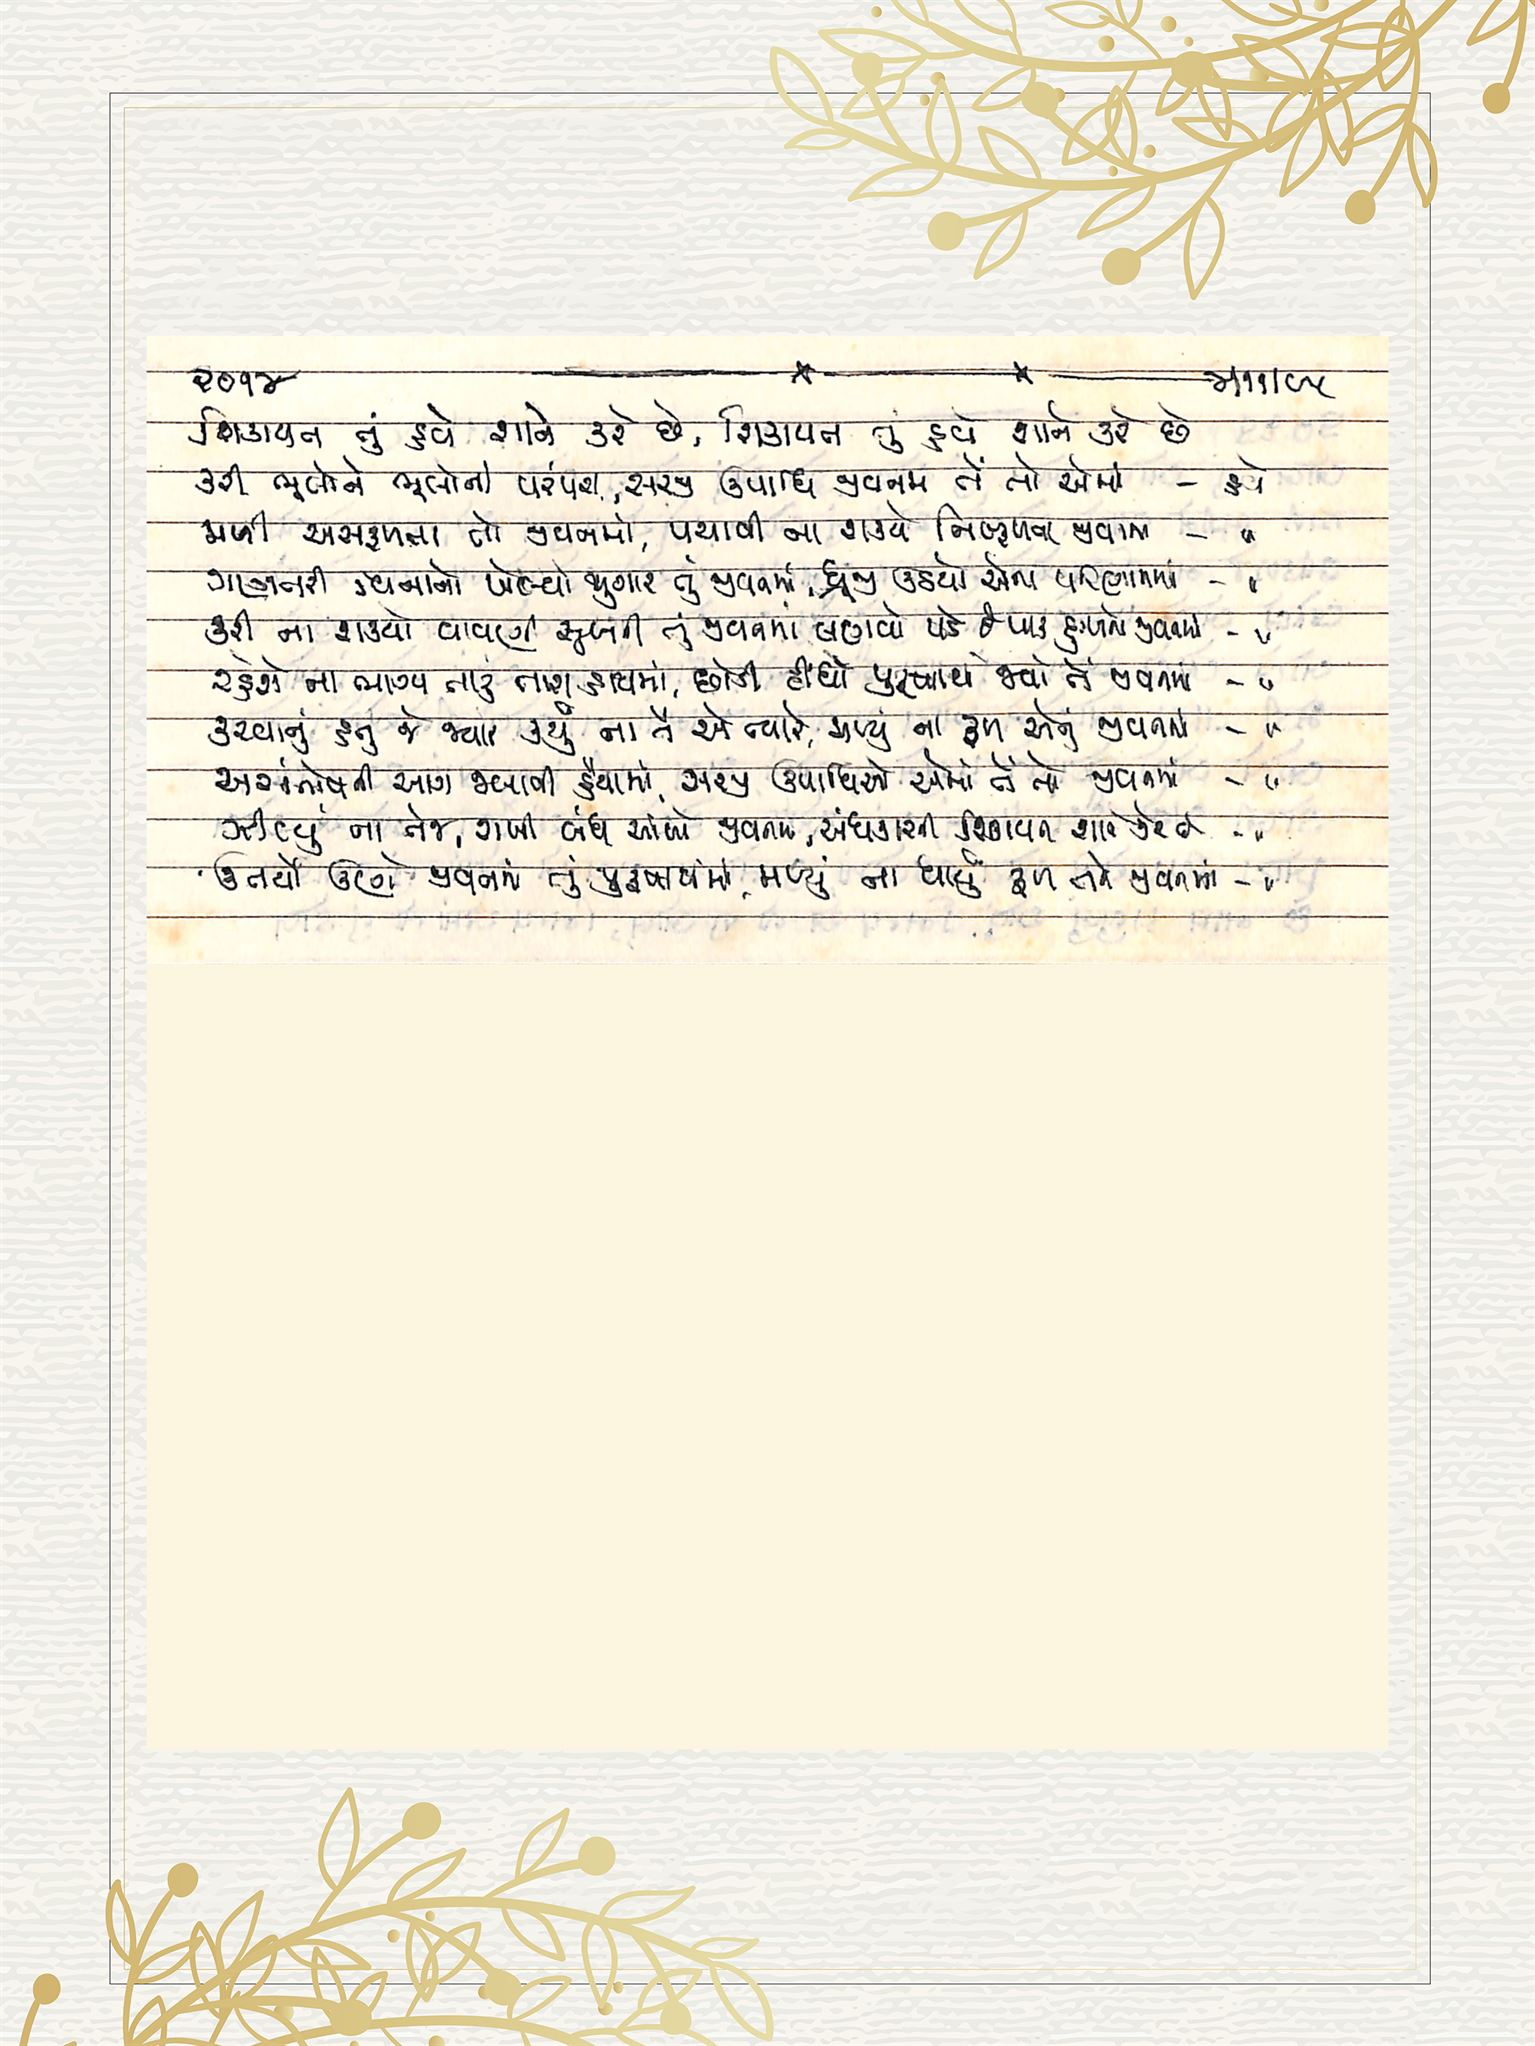 ૨૦૧૪
શિકાયત તું હવે શાને કરે છે, શિકાયત તું હવે શાને કરે છે
કરી ભૂલોને ભૂલોની પરંપરા, સરજી ઉપાધિ જીવનમાં તેં તો એમાં - હવે
મળી અસફળતા તો જીવનમાં, પચાવી ના શક્યો નિષ્ફળતા જીવનમાં - "
ગણતરી વિનાનો ખેલ્યો જુગાર તું જીવનમાં, ધ્રૂજી ઉઠયો એના પરિણામમાં - "
કરી ના શક્યો વાવણી સુખની તું જીવનમાં લણવો પડે છે પાક દુઃખનો જીવનમાં - "
રહેશે ના ભાગ્ય તારું તારા હાથમાં, છોડી દીધો પુરુષાર્થ જ્યાં તેં જીવનમાં - "
કરવાનું હતું જે જ્યારે કર્યું ના તેં એ ત્યારે, મળ્યું ના ફળ એનું જીવનમાં - "
અસંતોષની આગ જલાવી હૈયામાં, સરજી ઉપાધિઓ એમાં તેં તો જીવનમાં - "
ઝીલ્યું ના તેજ, રાખી બંધ આંખો જીવનમાં, અંધકારની શિકાયત શાને કરે છે - "
ઉતર્યો ઉણો જીવનમાં તું પુરુષાર્થમાં, મળ્યું ના ધાર્યું ફળ તને જીવનમાં - "